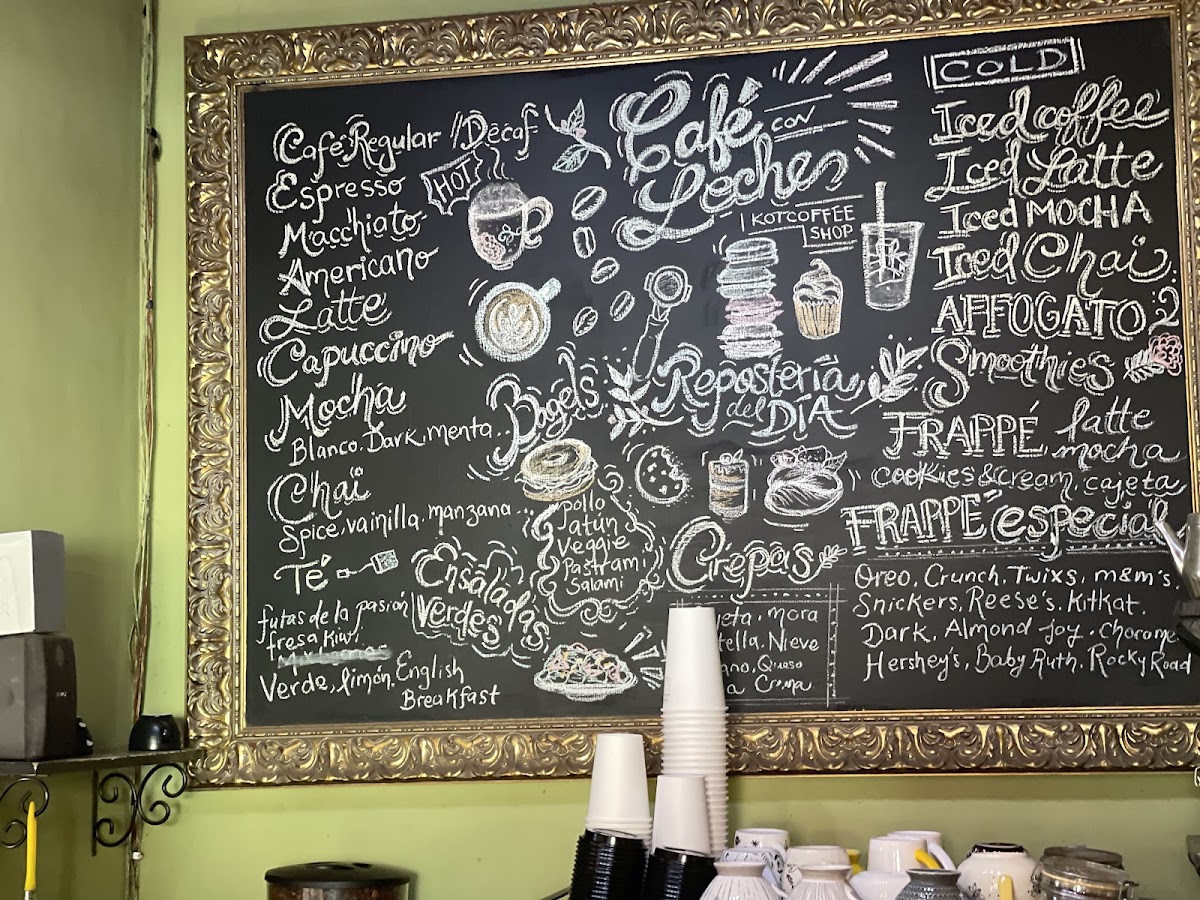 Café Regular //Decaf
HOT
Espresso
Macchiato
Americano
Latte
Capuccino
Mocha
Blanco. Dark. menta..
Chai
Spice. vainilla. manzana..
Té
futas de la pasión
fresa Kiwi
Verde, limón. English
Breakfast
Café con
Leche
KOTCOFFEE
SHOP
Repostería
del DÍA
Bagels
pollo
atún
Veggie
Pastrami
Salami
Ensaladas
Verdes
Crepas
mora
Nieve
Queso
Crema
COLD
Iced coffee
Iced Latte
Iced MOCHA
Iced Chai
AFFOGATO
Smoothies
FRAPPÉ latte
mocha
cookies & cream. cajeta
FRAPPÉ especial
Oreo. Crunch. Twixs. m&m's.
Snickers. Reese's. Kitkat.
Dark. Almond Joy. Chocome
Hershey's, Baby Ruth, Rocky Road